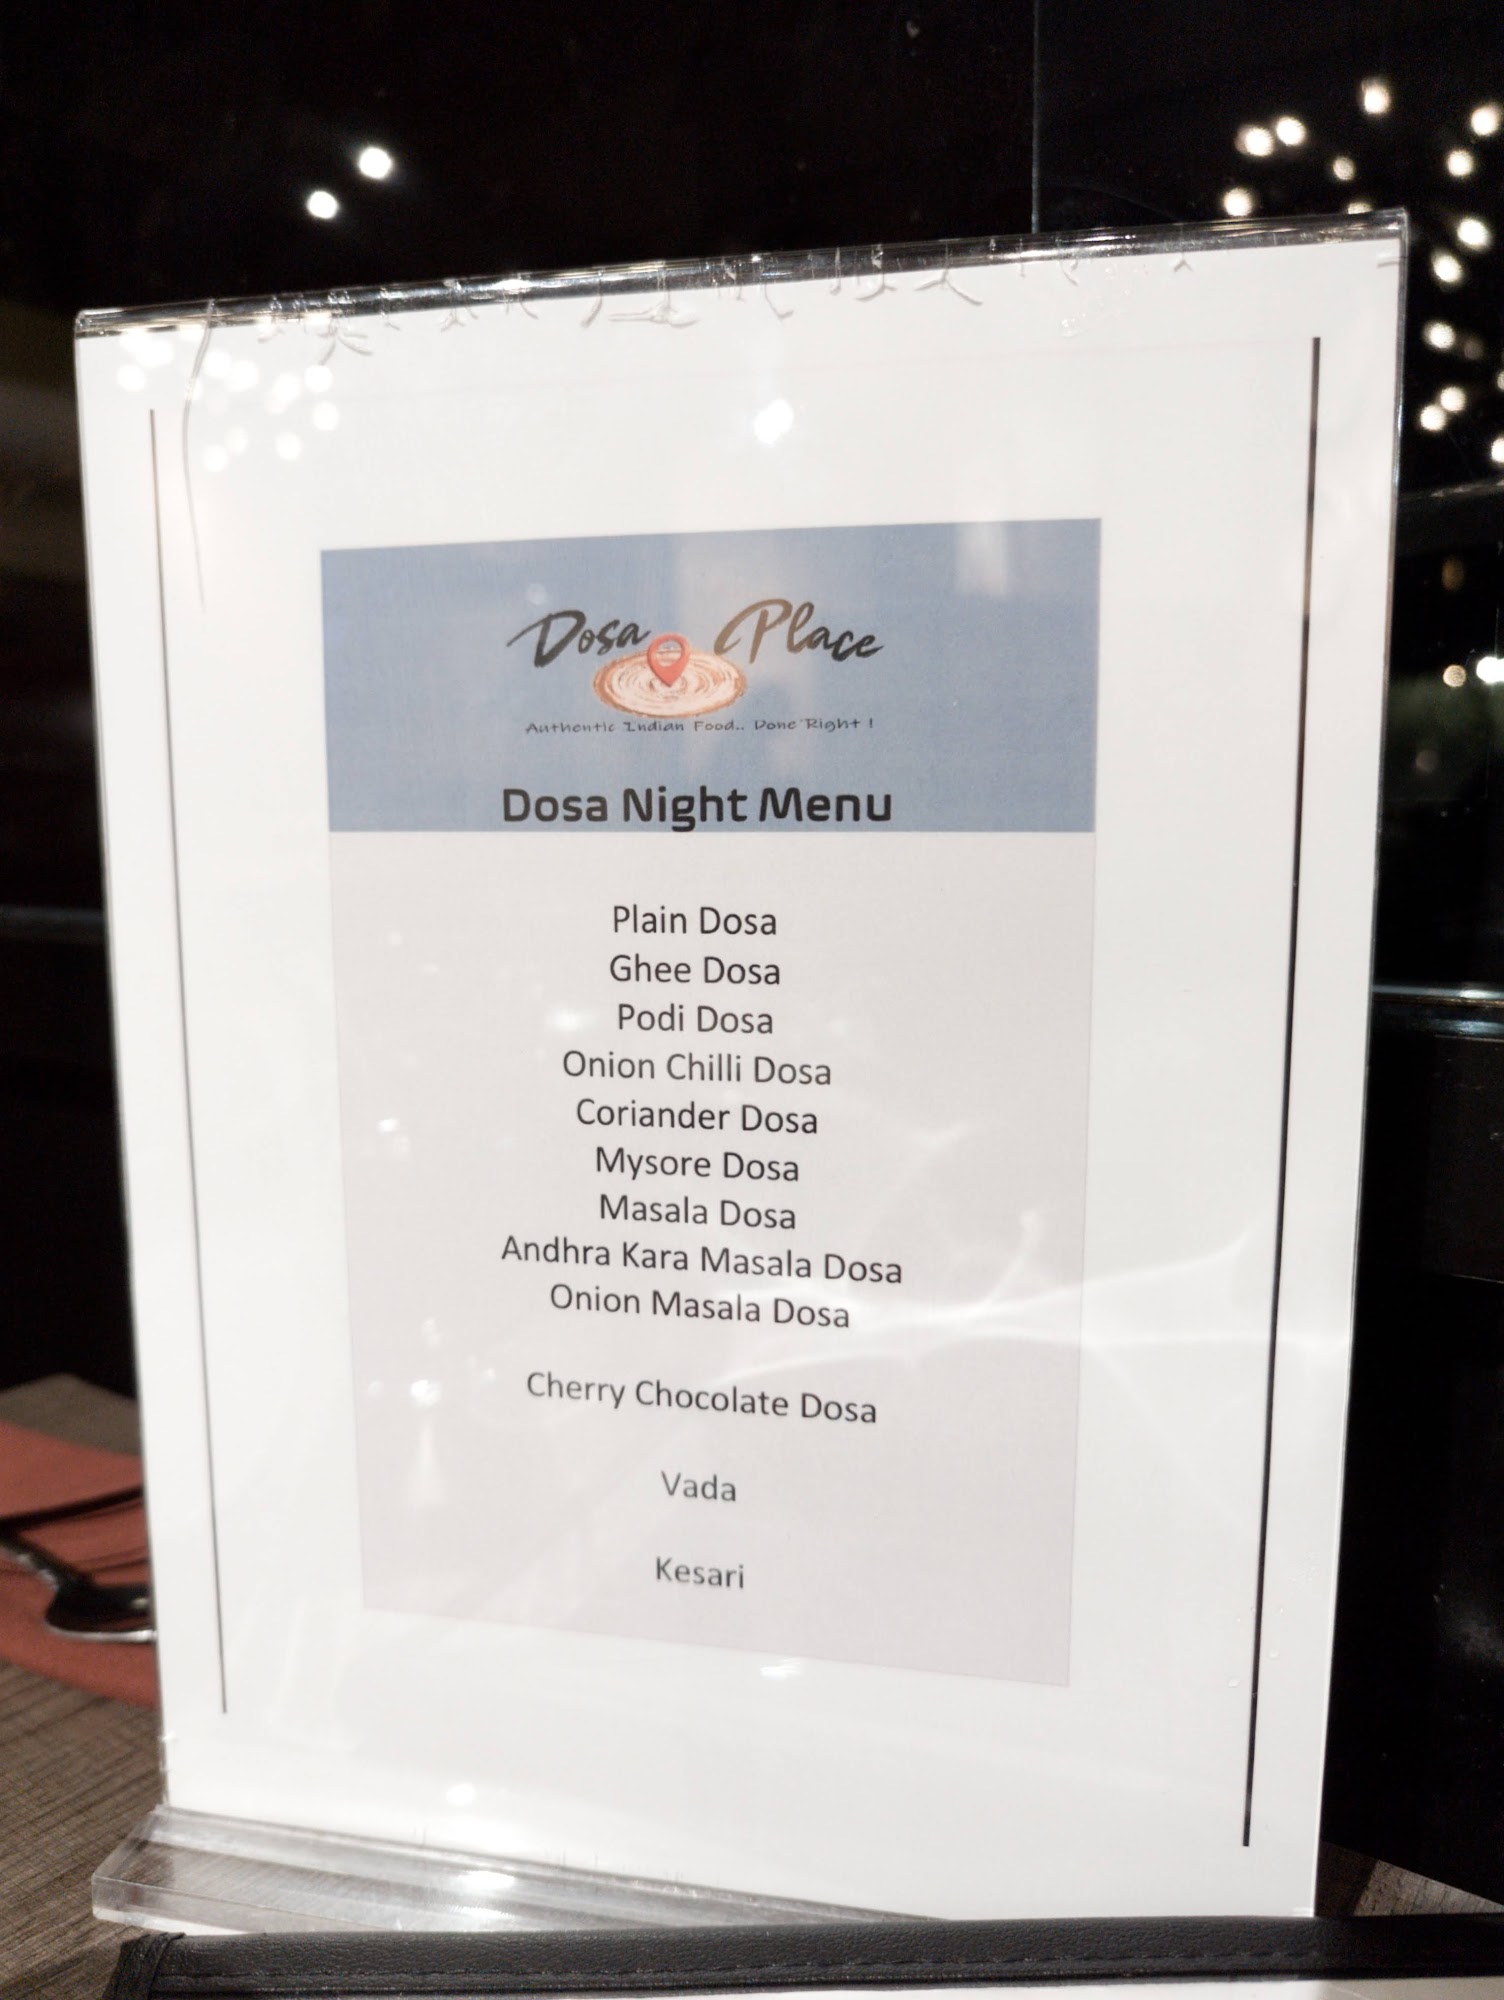 Dosa Place
Authentic Indian Food.. Done Right !
Dosa Night Menu
Plain Dosa
Ghee Dosa
Podi Dosa
Onion Chilli Dosa
Coriander Dosa
Mysore Dosa
Masala Dosa
Andhra Kara Masala Dosa
Onion Masala Dosa
Cherry Chocolate Dosa
Vada
Kesari